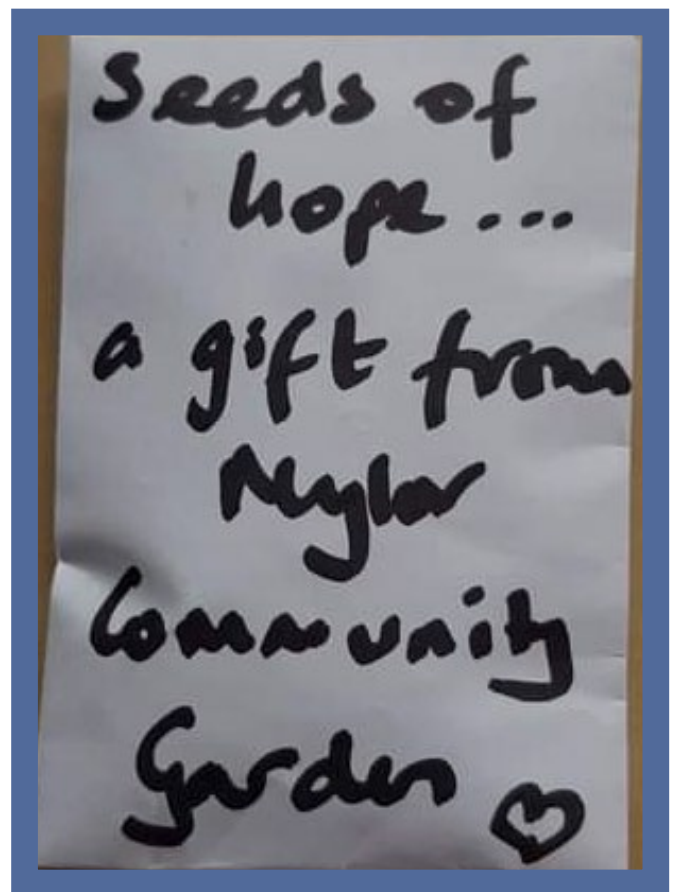 Seeds of
hope...
a gift from
Community
Garden ♡